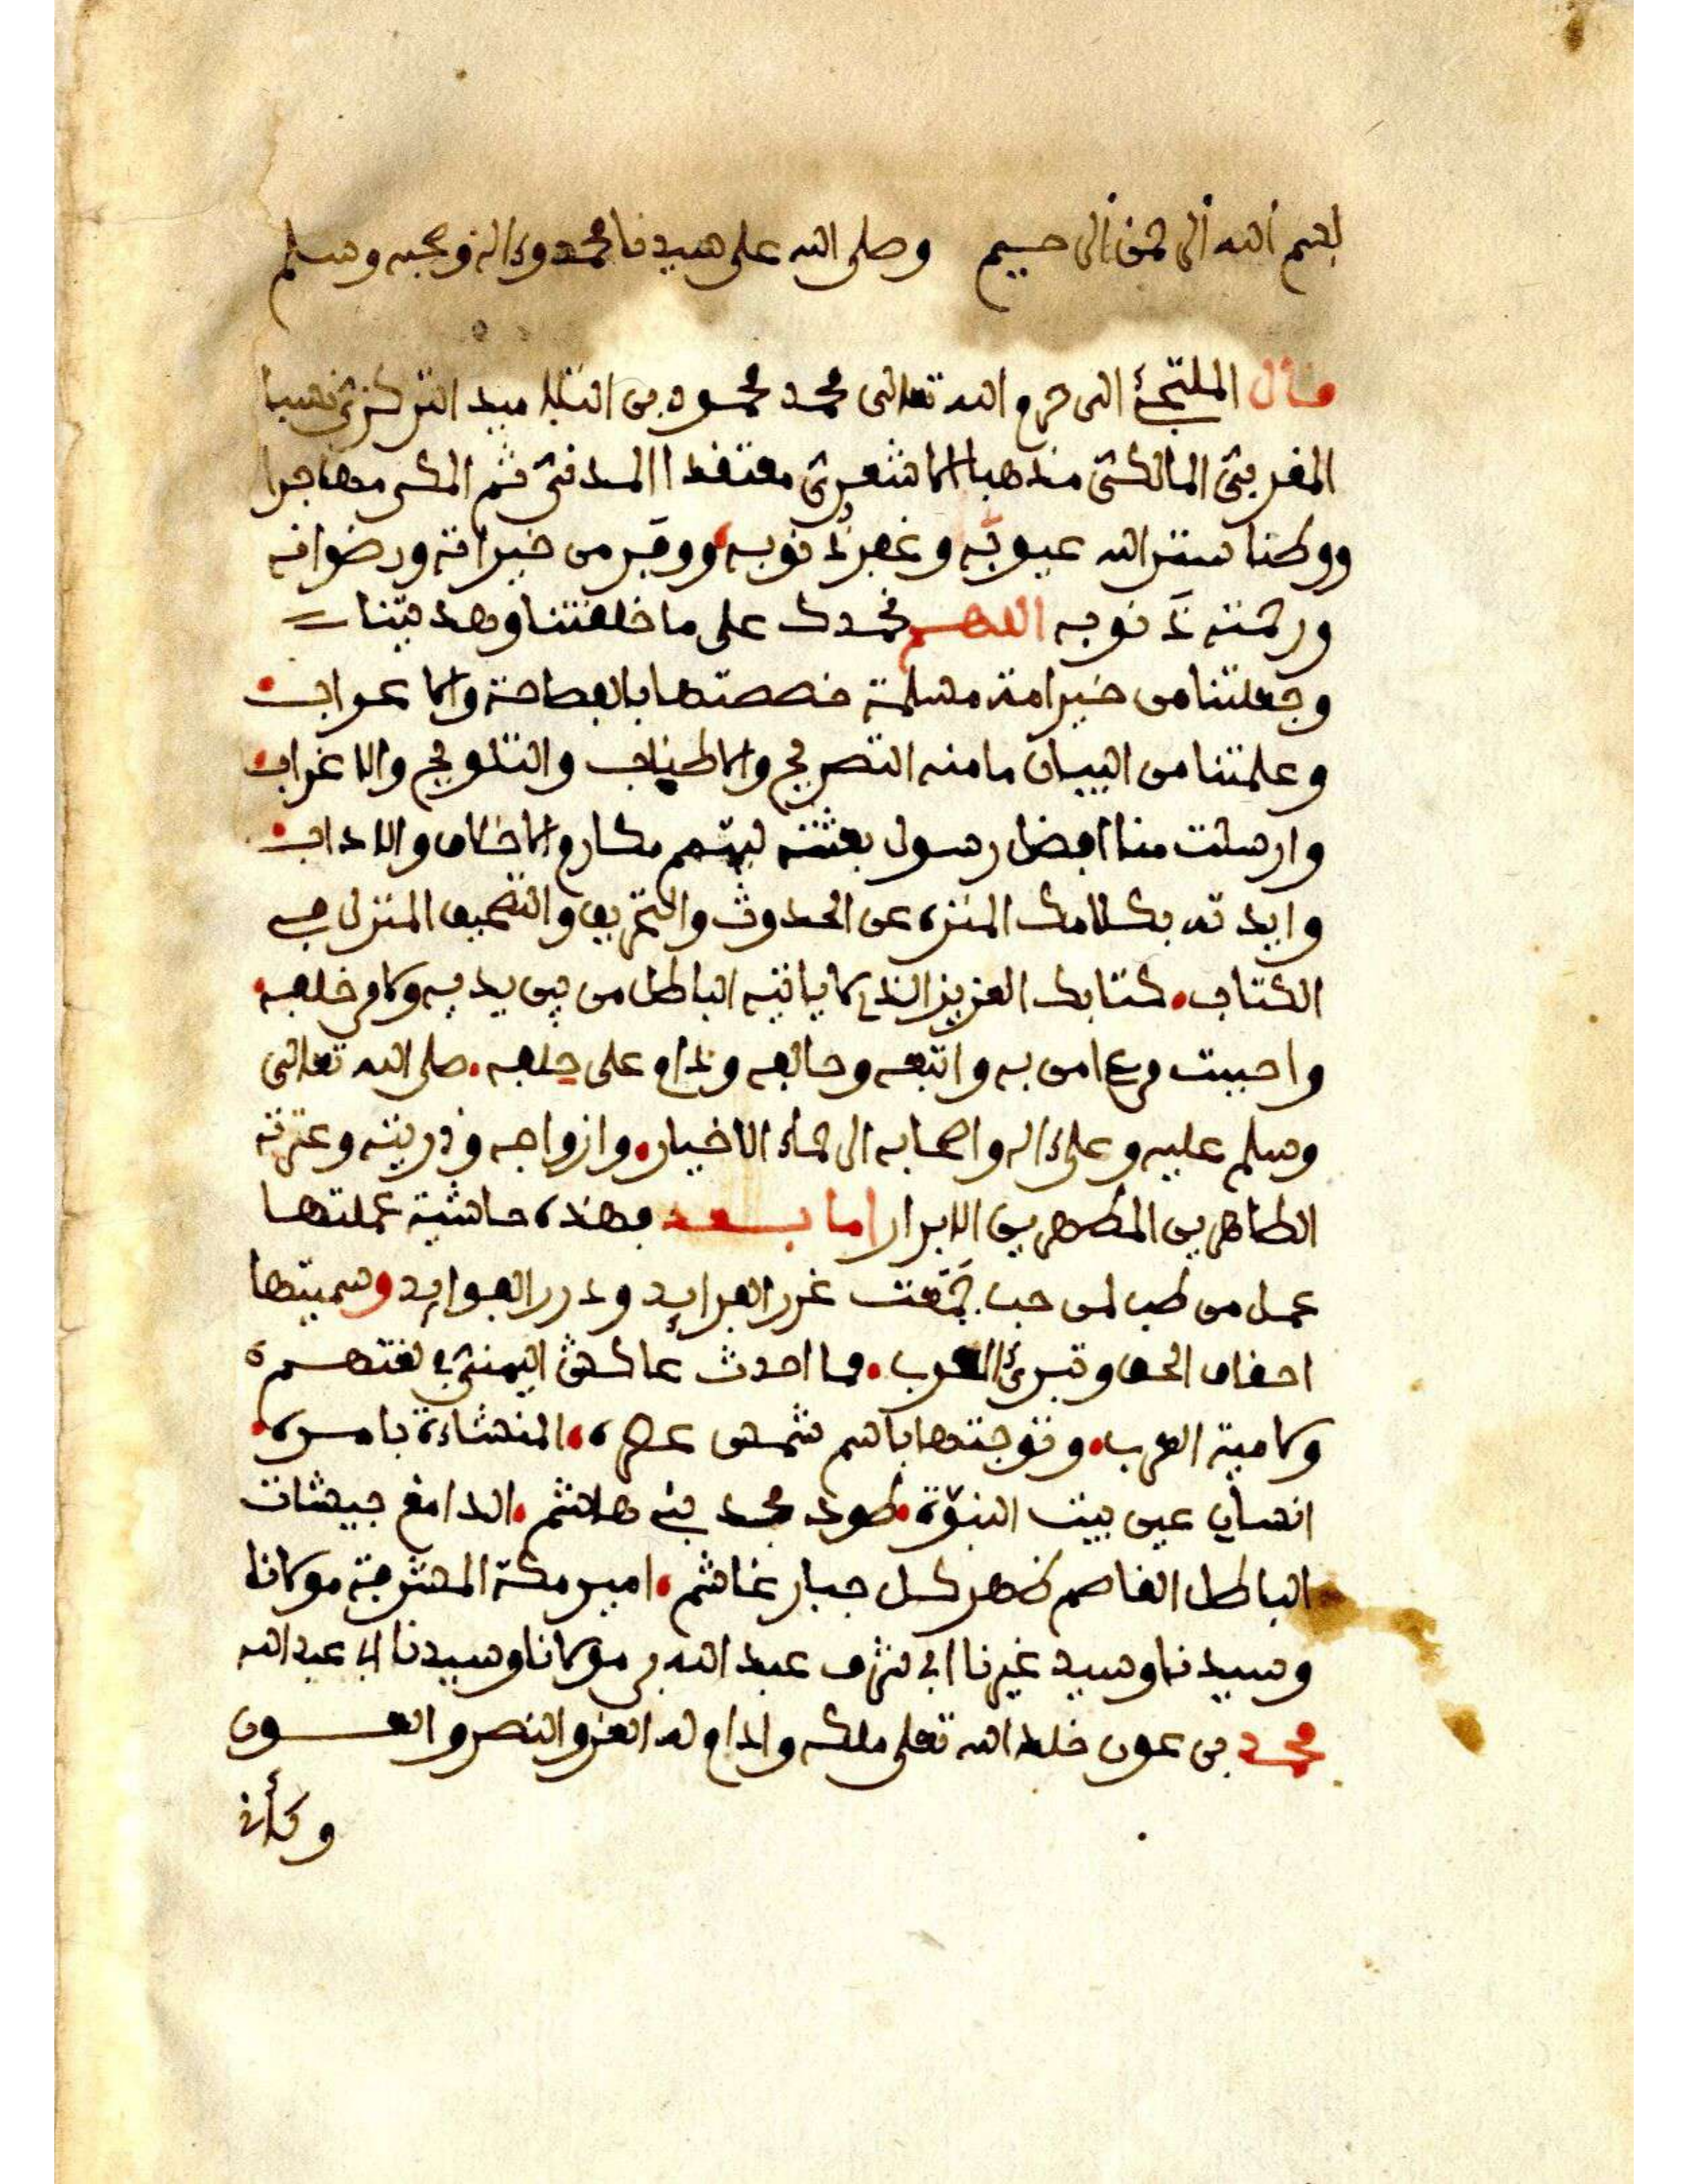 بسم الله الرحمن الرحيم وصلى الله على سيدنا محمد وءاله وصحبه وسلم
قال الملتجئ الى حرم الله تعالى محمد محمود بن التلاميد التركزي نسبا
المغربي المالكي مذهبا الاشعري معتقدا المدني ثم المكي مهاجرا
ووطنا ستر الله عيوبه وغفر ذنوبه ووفر من خيراته ورضوانه
ورحمته ذنوبه اللهم نحمدك على ما خلقتنا وهديتنا
وجعلتنا من خير امة مسلمة خصصتها بالفصاحة والاعراب
وعلمتنا من البيان ما منه التصريح والاطناب والتلويح والاغراب
وارسلت منا افضل رسول بعثته ليتمم مكارم الاخلاق والاداب
وايدته بكلامك المنزه عن الحدوث والتحريف والتصحيف المنزل في
الكتاب كتابك العزيز الذي لا ياتيه الباطل من بين يديه ولا من خلفه
واحببت من ءامن به واتبعه وحالفه ودام على حلفه صلى الله تعالى
وسلم عليه وعلى ءاله واصحابه الرحماء الاخيار وازواجه وذريته وعترته
الطاهرين المطهرين الابرار اما بعد فهذه حاشية عملتها
عمل من طب لمن حب جمعت غرر الفرايد ودرر الفوايد وسميتها
احقاق الحق وتبرئ العرب مما احدث عاكش اليمني في لغتهم
ولامية العرب وتوجتها باسم شمس عصره المنشاءة بامره
انسان عين بيت النبوة طود مجد بني هاشم الدامغ جيشات
الباطل القاصم ظهر كل جبار غاشم امير مكة المشرفة مولانا
وسيدنا وسيد غيرنا ابي شرف عبد الله بن مولانا وسيدنا ابي عبد الله
محمد بن عون خلد الله تعلى ملكه وادام له العز والنصر والعون
وكأني